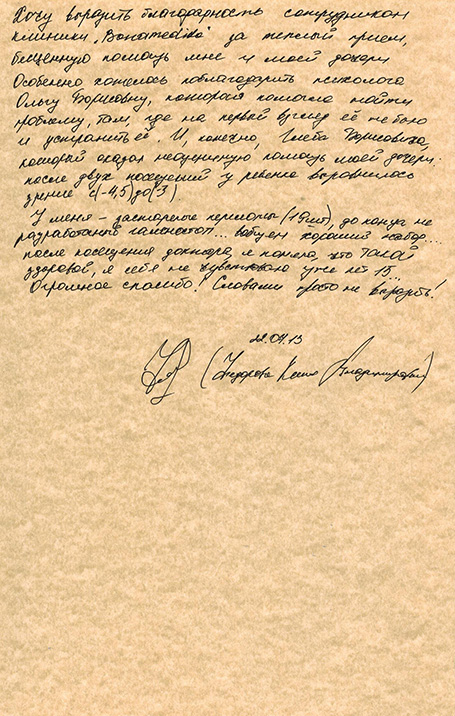 Хочу выразить благодарность сотрудникам
клиники „Bonamedika" за теплый прием,
бесценную помощь мне и моей дочери
Особенно хотелось поблагодарить психолога
Ольгу Борисовну, которая помогла найти
проблему, там, где на первый взгляд её не было
и устранить её. И, конечно, Глеба Борисовича,
который оказал неоценимую помощь моей дочери.
после двух посещений у ребенка выровнилось
зрение с(-4,5) до (3).
У меня – застарелые переломы (19 лет), до конца не
разработанный ... вобщем хороший набор...
после посещения доктора, я поняла, что такой
здоровой, я себя не чувствовала уже лет 15...
Огромное спасибо! Словами просто не выразить!
22.04.13